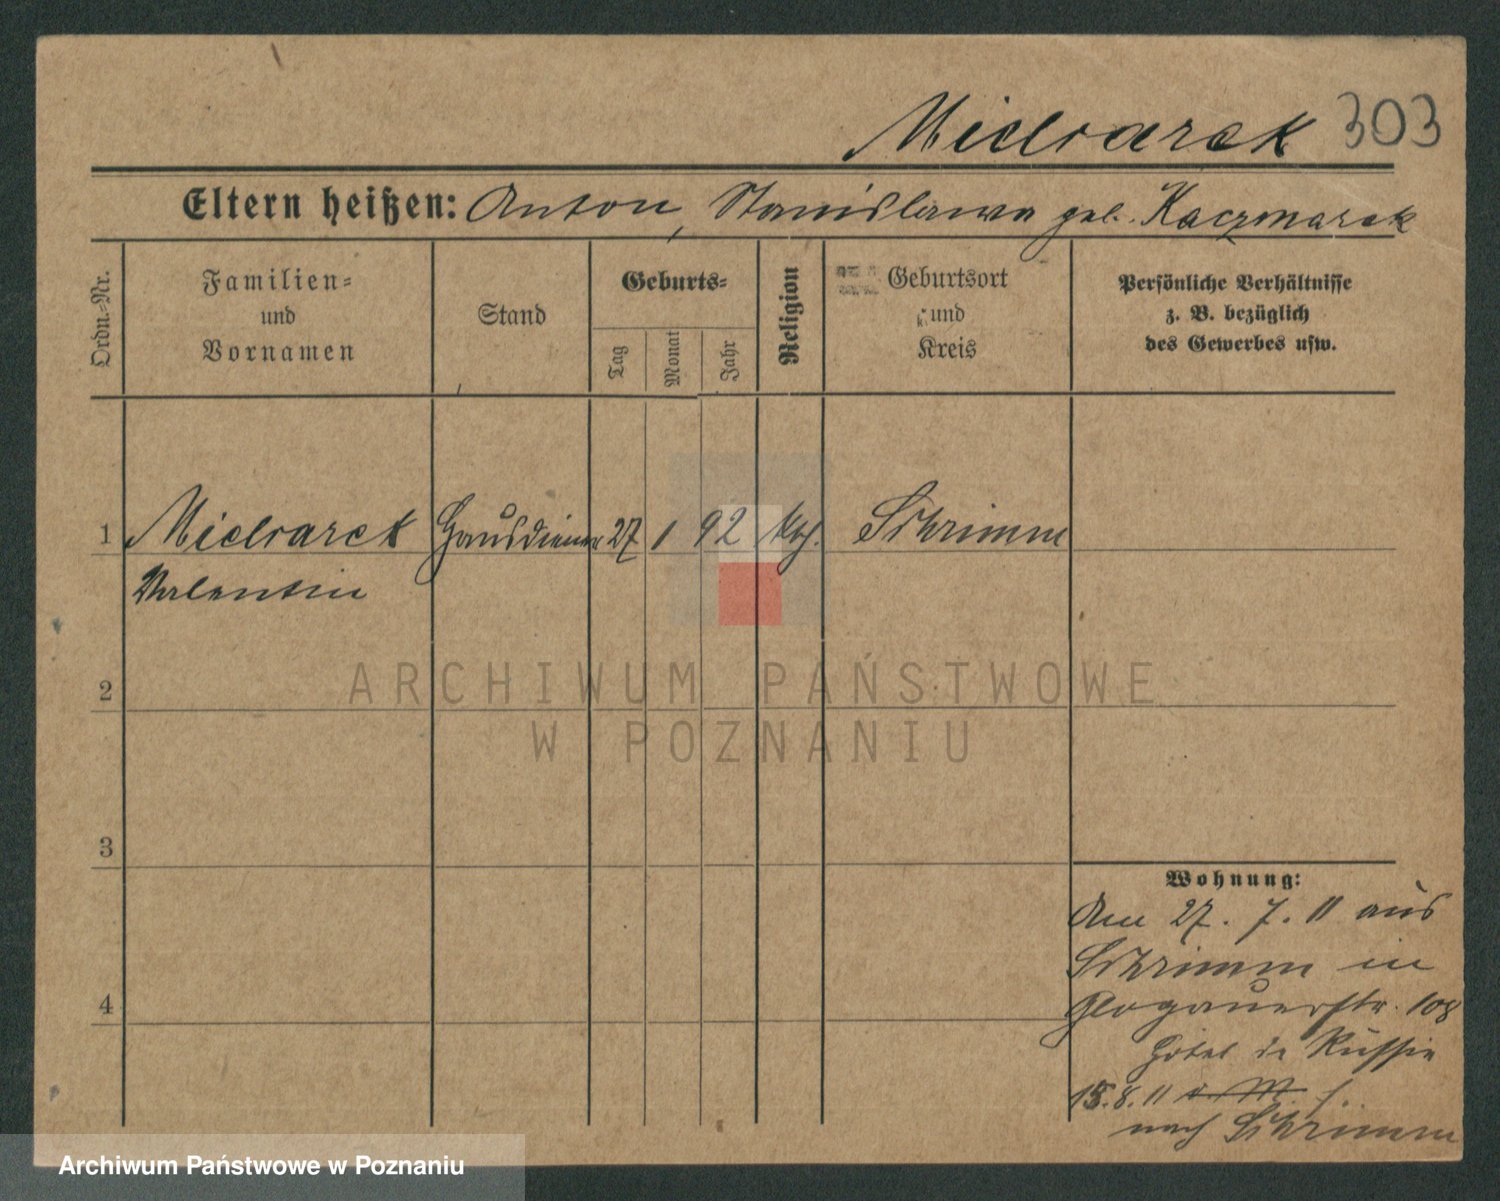 Mielcarek 303
Eltern heißen: Anton, Stanislawa geb. Kaczmarek
Ordn.-Nr.
Familien-
und
Vornamen
Stand
Geburts-
Tag
Monat
Jahr
Religion
Geburtsort
und
Kreis
Persönliche Verhältnisse
z. B. bezüglich
des Gewerbes usw.
1 Mielcarek Hausdiener 27 1 92 kath. Schrimm
Valentin
2
ARCHIWUM PAŃSTWOWE
W POZNANIU
3
Wohnung:
Am 27. 7. 11 aus
Schrimm in
4
Glogauerstr. 108
Hotel de Russie
15.8.11
nach Schrimm
Archiwum Państwowe w Poznaniu